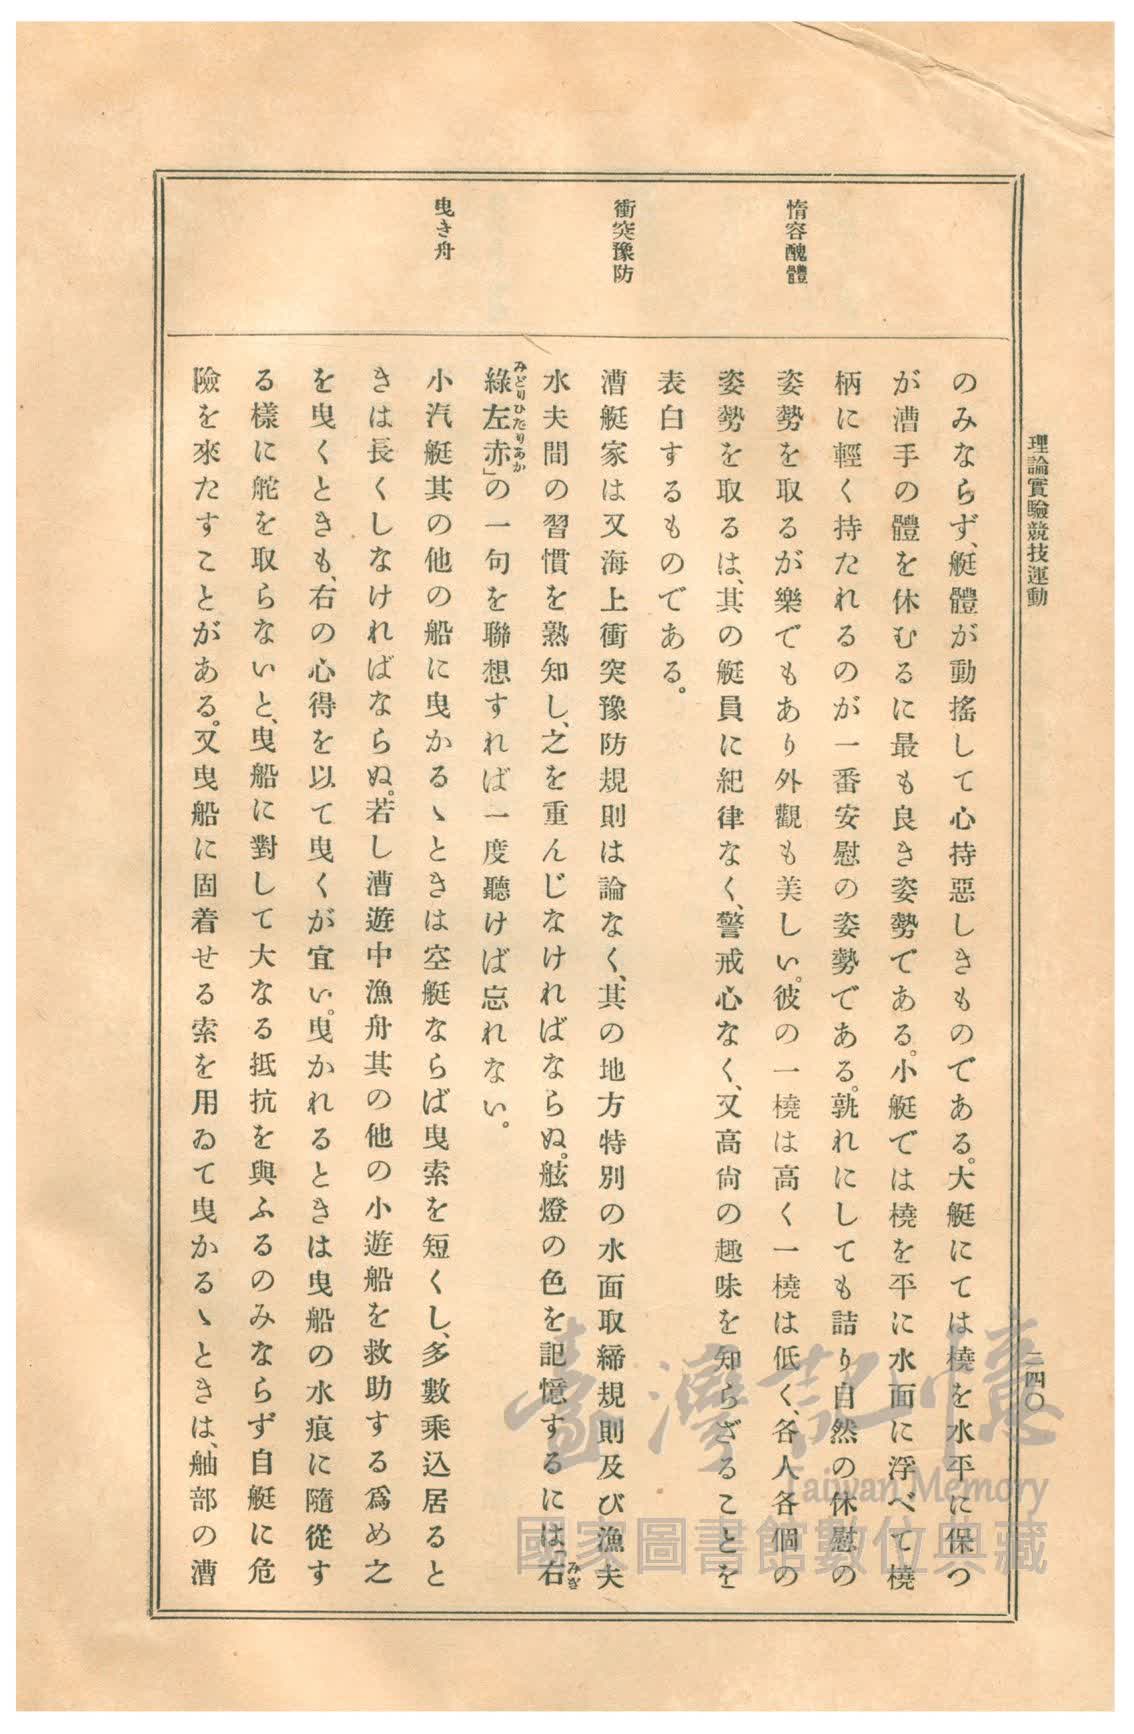 理論實驗競技運動
二四〇
惰容醜體
衝突豫防
曳き舟
のみならず、艇體が動搖して心持惡しきものである。大艇にては橈を水平に保つ
が漕手の體を休むるに最も良き姿勢である。小艇では橈を平に水面に浮べて橈
柄に輕く持たれるのが一番安慰の姿勢である。孰れにしても詰り自然の休慰の
姿勢を取るが樂でもあり外觀も美しい。彼の一橈は高く一橈は低く、各人各個の
姿勢を取るは、其の艇員に紀律なく、警戒心なく、又高尙の趣味を知らざることを
表白するものである。
漕艇家は又海上衝突豫防規則は論なく、其の地方特別の水面取締規則及び漁夫
水夫間の習慣を熟知し、之を重んじなければならぬ。舷燈の色を記憶するには「右
みぎ
綠左赤」の一句を聯想すれば一度聽けば忘れない。
みどりひだりあか
小汽艇其の他の船に曳かるゝときは空艇ならば曳索を短くし、多數乘込居ると
きは長くしなければならぬ。若し漕遊中漁舟其の他の小遊船を救助する爲め之
を曳くときも、右の心得を以て曳くが宜い。曳かれるときは曳船の水痕に隨從す
る樣に舵を取らないと、曳船に對して大なる抵抗を與ふるのみならず自艇に危
險を來たすことがある。又曳船に固着せる索を用ゐて曳かるゝときは、舳部の漕
臺灣記憶
Taiwan Memory
國家圖書館數位典藏